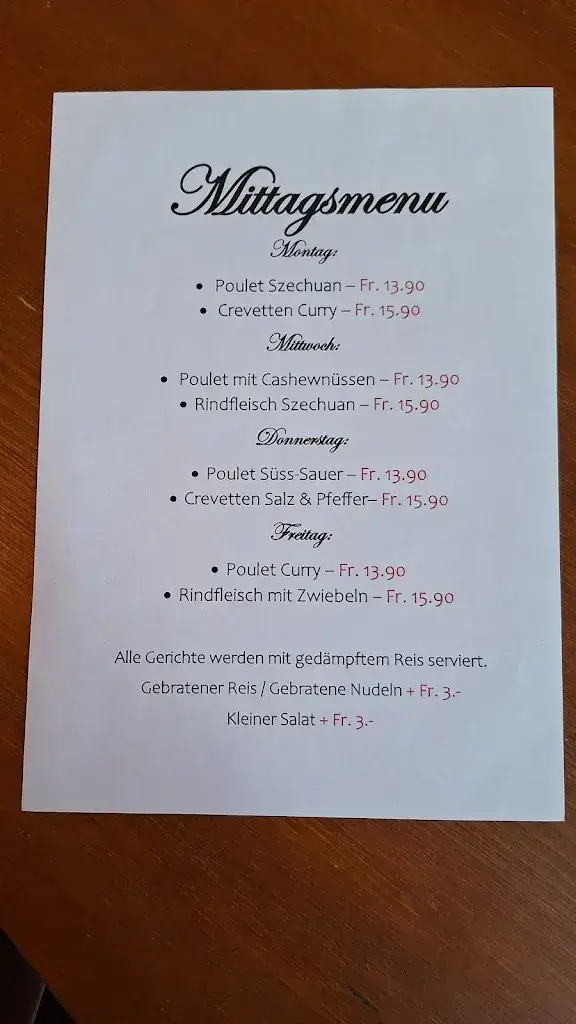 Mittagsmenu
Montag:
• Poulet Szechuan – Fr. 13.90
• Crevetten Curry – Fr. 15.90
Mittwoch:
• Poulet mit Cashewnüssen – Fr. 13.90
• Rindfleisch Szechuan – Fr. 15.90
Donnerstag:
• Poulet Süss-Sauer – Fr. 13.90
• Crevetten Salz & Pfeffer– Fr. 15.90
Freitag:
• Poulet Curry – Fr. 13.90
• Rindfleisch mit Zwiebeln – Fr. 15.90
Alle Gerichte werden mit gedämpftem Reis serviert.
Gebratener Reis / Gebratene Nudeln + Fr. 3.-
Kleiner Salat + Fr. 3.-